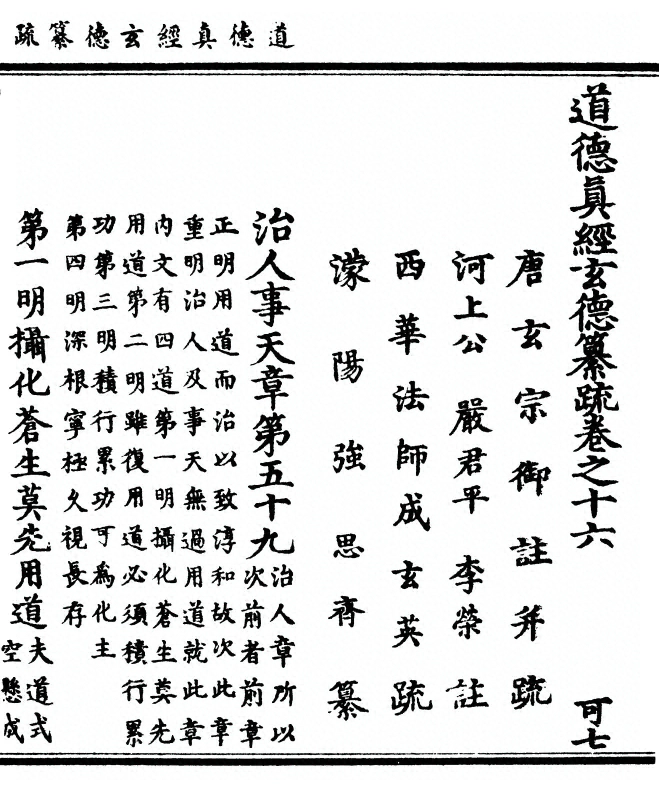 道德真經玄德纂疏
道德真經玄德纂疏卷之十六 可七
唐玄宗御註并疏
河上公 嚴君平 李榮 註
西華法師成玄英疏
濛陽強思齊纂
治人事天章第五十九 治人章所以
次前者前章
正明用道而治以致淳和故次此章
重明治人及事天無過用道就此章
内文有四道第一明攝化蒼生莫先
用道第二明雖復用道必須積行累
功第三明積行累功可為化主
第四明深根寧極久視長存
第一明攝化蒼生莫先用道 夫道式
空懸成